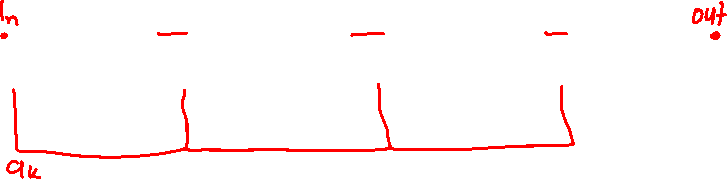 In
out
ak